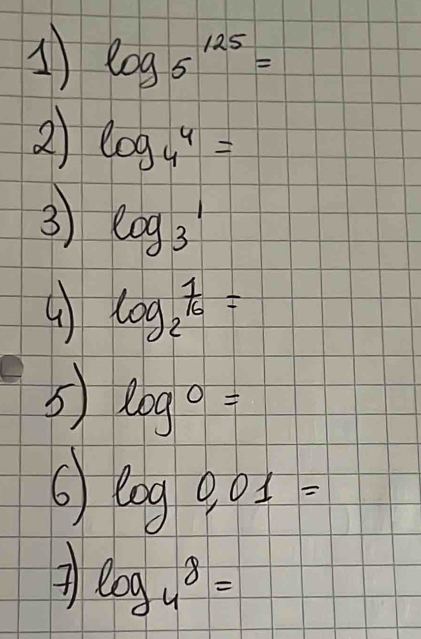 1) log₅ 125 =
2) log₄ 4 =
3) log₃ 1
4) log₂ 1/16 =
5) log 0 =
6) log 0,01 =
7) log₄ 8 =